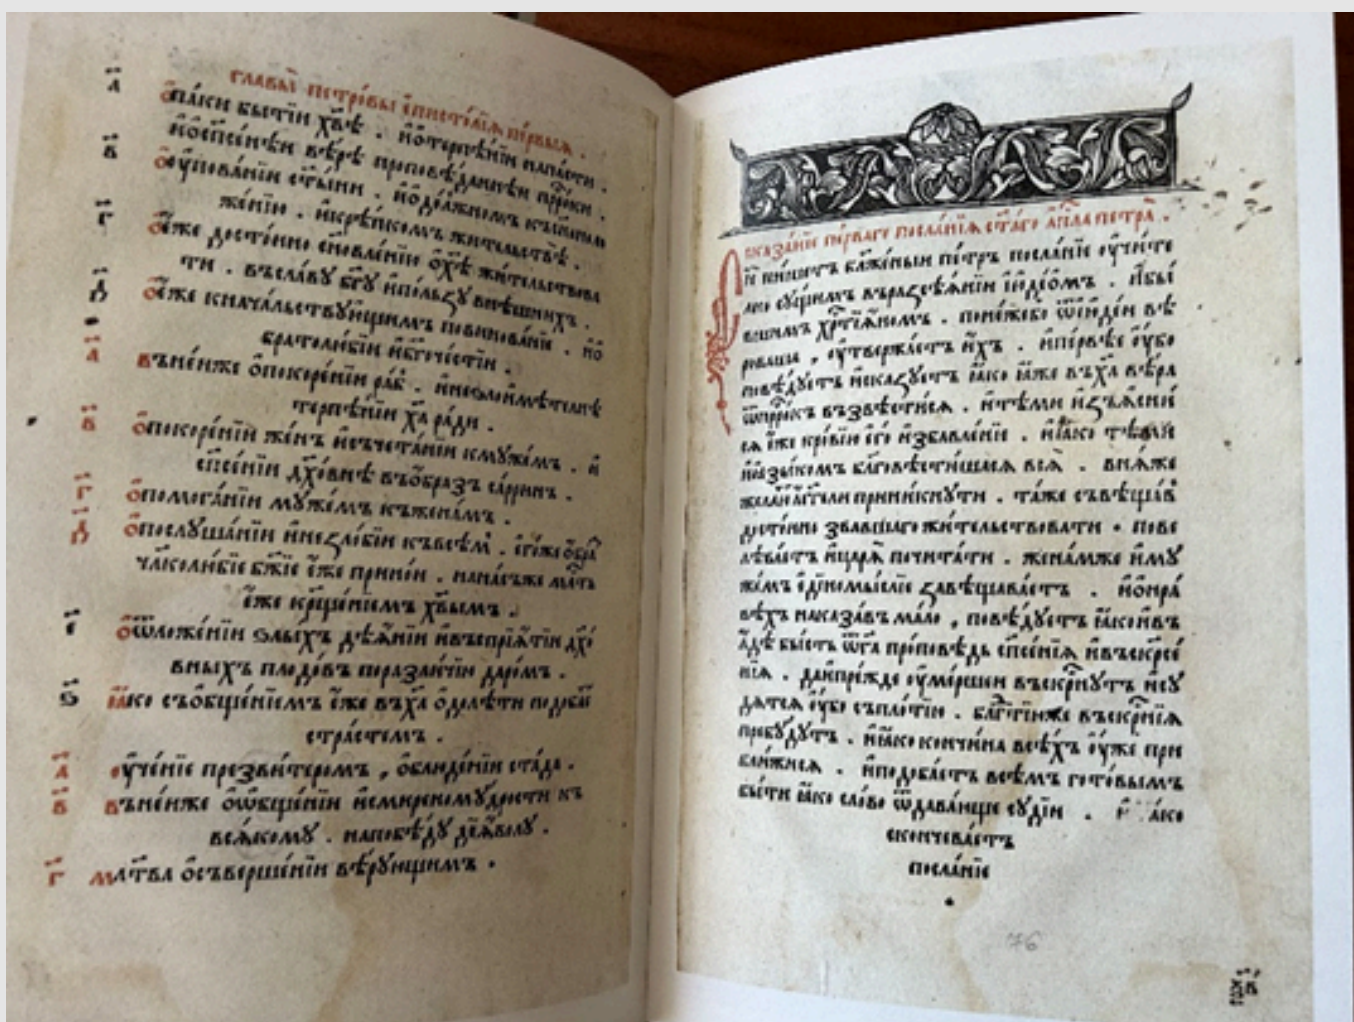 главы̀ петро́вы є҆писто́лїѧ пе́рвыѧ .
а҃ ѻ҆паки бытїи хв҃ѣ . и҆ѻ҆терпѣ́нїи напа́сти .
и҆ѻ҆сп҃сенѣи вѣ́рѣ проповѣ́даннѣи прⷪ҇рки .
в҃ ѻ҆у҆пова́нїи ст҃ы́ни .
же́нїи . и҆крѣ́пкомъ жи́тельствѣ .
г҃ ѻ҆є҆́же досто́ино сн҃овле́нїю ѻ҆хѣ҃ жи́тельствова
ти . въсла́ву бг҃у и҆по́льзу внѣ́шнихъ .
д҃ ѻ҆є҆́же кнача́льствꙋющимъ повинова́нїе . и҆ѻ
братолю́бїи и҆бг҃оче́стїи .
а҃ въне́нже ѻ҆покоре́нїи ра́бъ .
терпѣ́нїи хⷭ҇а ра́ди .
в҃ ѻ҆покоре́нїи же́нъ и҆съчета́нїи кму́жемъ . и҆
сп҃се́нїи дх҃о́внѣ въѻ҆́бразъ са́ррин .
г҃ ѻ҆помога́нїи му́жемъ къжена́мъ .
д҃ ѻ҆послуша́нїи и҆незло́бїи къвсѣ́мъ . є҆го́же ѻ҆́бра
чл҃колю́бїе бж҃їе є҆́же при но́и . на на́съже
є҆́же крⷭ҇ще́нїемъ хв҃ымъ .
є҃ ѻ҆ѿложе́нїи ѕлы́хъ дѣѧ́нїи и҆въспрїѧ́тїи дх҃о́
вныхъ плодо́въ поразли́чїи даро́мъ .
ѕ҃ ꙗ҆́ко съѻ҆бще́нїемъ є҆́же въхⷭ҇а ѻ҆долѣ́ти подоба́є
стра́стемъ .
а҃ у҆че́нїе презви́теромъ , ѻ҆блюде́нїи ста́да .
в҃ въне́нже ѻ҆ѡ҆бще́нїи и҆смиреному́дрости къ
всѧ́кому . напобѣ́ду дїѧ́волу .
г҃ мл҃тва ѻ҆съверше́нїи вѣ́рующимъ .
Сказа́нїе пе́рваго посла́нїѧ ст҃а́го а҆пⷭ҇ла петра̀ .
И҆ пи́шетъ бл҃же́ныи пе́тръ посла́нїе у҆чи́те
ꙗко су́щимъ въразсѣ́ѧнїи і҆ꙋде́ѡмъ . и҆бы́
вшимъ хрⷭ҇тїѧ́номъ . поне́жебо ѿи҆юде́и вѣ
роваша , у҆твержа́етъ и҆́хъ . и҆пе́рвѣе у҆́бо
повѣ́дуетъ и҆ска́зуетъ ꙗ҆́ко ꙗ҆́же въхⷭ҇а вѣ́ра
ѿпрⷪ҇ркъ възвѣсти́сѧ . и҆тѣ́ми и҆зъѧсни́
сѧ є҆́же кро́вїю є҆го̀ и҆збавле́нїе . и҆ꙗ҆́ко тѣ́ми
и҆ꙗ҆зы́комъ бл҃говѣсти́шасѧ всѧ̀ . внѧ́же
жела́ют а҆́гг҃ели прини́кнути . та́же съвѣща́въ
досто́ино зва́вшаго жи́тельствовати . пове
лѣва́етъ и҆царѧ̀ почита́ти . жена́мже и҆му
же́мъ є҆дїномы́слїе завѣщава́етъ . и҆ѻ҆нра́
вѣхъ наказа́въ ма́ло , повѣ́дуетъ ꙗ҆́кои҆въ
а҆́дѣ бы́сть ѿгⷭ҇а про́повѣдь сп҃се́нїѧ и҆въскрⷭ҇се́
нїѧ . даи҆пре́жде у҆ме́ршеи въскрⷭ҇нутъ и҆су
дѧ́тсѧ у҆́бо съпло́тїю . блг҃тїю́же въскрⷭ҇нїѧ
пребу́дутъ . и҆ꙗ҆́ко кончи́на всѣ́хъ у҆́же при
бли́жисѧ . и҆подоба́етъ всѣ́мъ гото́вымъ
бы́ти ꙗ҆́ко сло́во ѿдава́юще судїи̑ . и҆ та́ко
скончева́етъ
посла́нїе
76